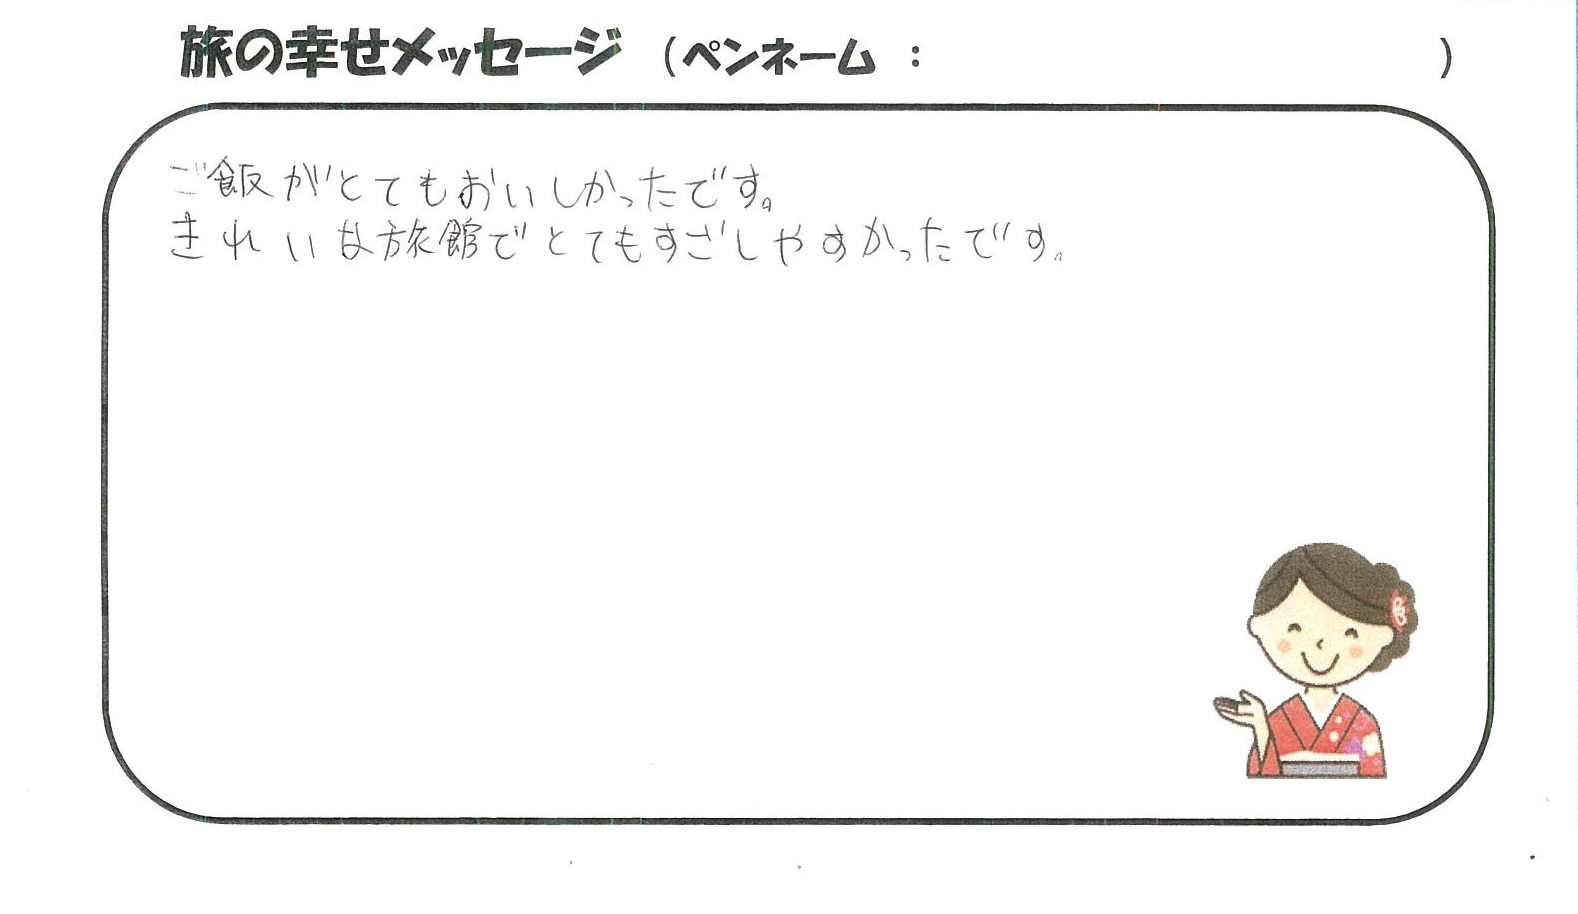 旅の幸せメッセージ (ペンネーム : )
ご飯がとてもおいしかったです。
きれいな旅館でとてもすごしやすかったです。